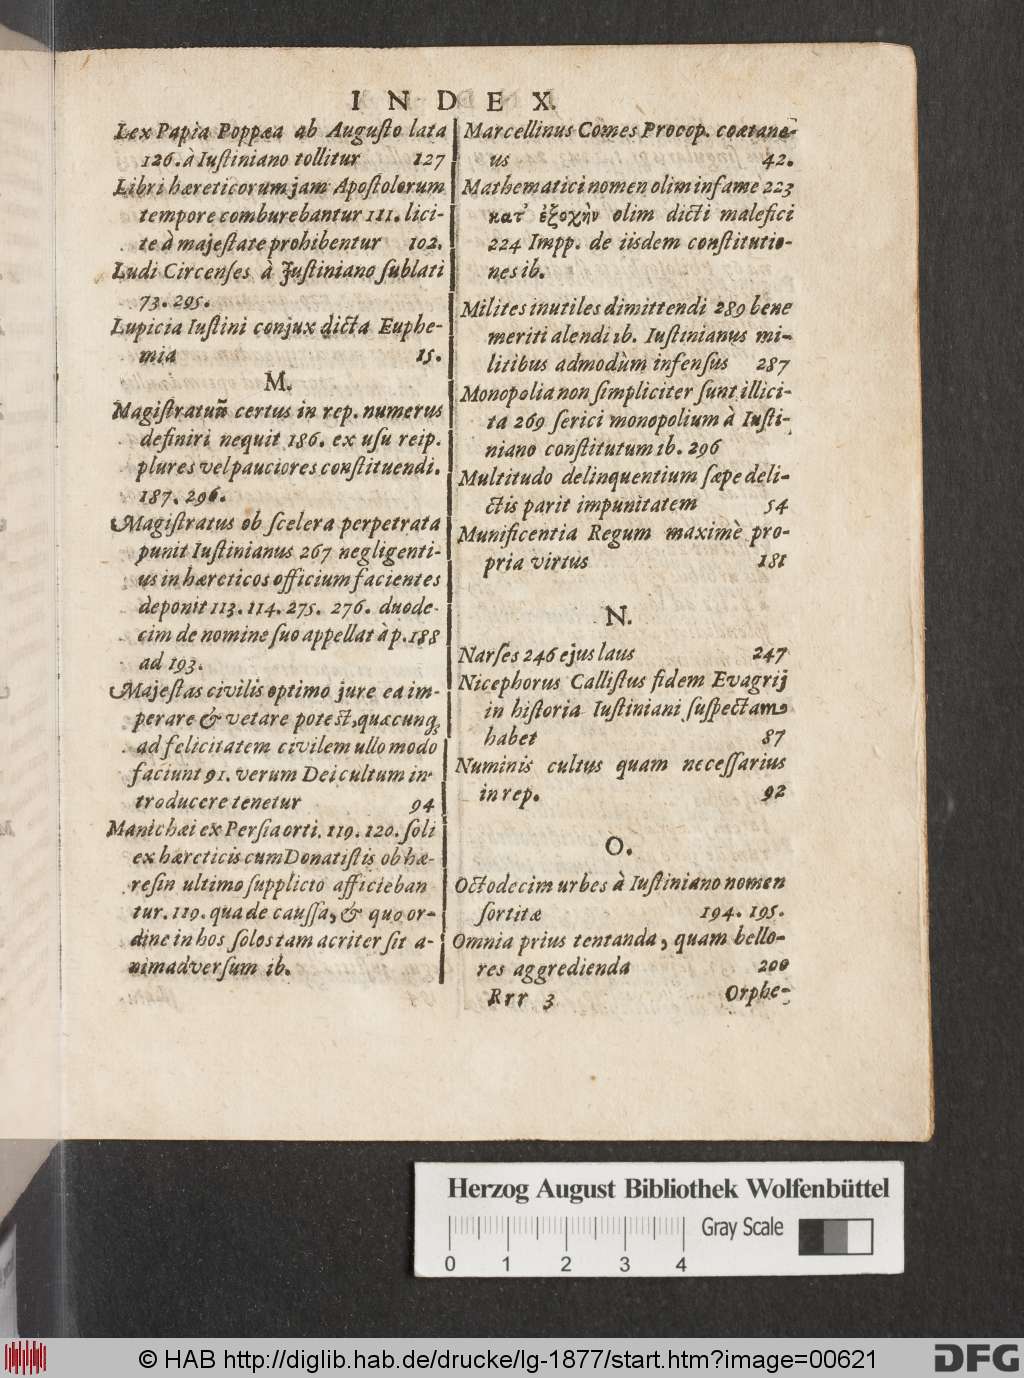 INDEX.
Lex Papia Poppæa ab Augusto lata
126. à Iustiniano tollitur 127
Libri hæreticorum jam Apostolorum
tempore comburebantur 111. lici-
te à majestate prohibentur 102.
Ludi Circenses à Justiniano sublati
73. 295.
Lupicia Iustini conjux dicta Euphe-
mia 15.
M.
Magistratuũ certus in rep. numerus
definiri nequit 186. ex usu reip.
plures vel pauciores constituendi.
187. 296.
Magistratus ob scelera perpetrata
punit Iustinianus 267 negligenti-
us in hæreticos officium facientes
deponit 113. 114. 275. 276. duode-
cim de nomine suo appellat à p. 188
ad 193.
Majestas civilis optimo jure ea im-
perare & vetare potest, quæcunq;
ad felicitatem civilem ullo modo
faciunt 91. verum Dei cultum in-
troducere tenetur 94
Manichæi ex Persia orti. 119. 120. soli
ex hæreticis cum Donatistis ob hæ-
resin ultimo supplicio afficieban
tur. 119. qua de caussa, & quo or-
dine in hos solos tam acriter sit a-
nimadversum ib.
Marcellinus Comes Procop. coætane-
us 42.
Mathematici nomen olim infame 223
κατ' ἐξοχὴν olim dicti malefici
224 Impp. de iisdem constitutio-
nes ib.
Milites inutiles dimittendi 289 bene
meriti alendi ib. Iustinianus mi-
litibus admodùm infensus 287
Monopolia non simpliciter sunt illici-
ta 269 serici monopolium à Iusti-
niano constitutum ib. 296
Multitudo delinquentium sæpe deli-
ctis parit impunitatem 54
Munificentia Regum maximè pro-
pria virtus 181
N.
Narses 246 ejus laus 247
Nicephorus Callistus fidem Evagrij
in historia Iustiniani suspectam
habet 87
Numinis cultus quam necessarius
in rep. 92
O.
Octodecim urbes à Iustiniano nomen
sortitæ 194. 195.
Omnia prius tentanda, quam bello-
res aggredienda 200
Rrr 3 Orphe-
Herzog August Bibliothek Wolfenbüttel
Gray Scale
0 1 2 3 4
© HAB http://diglib.hab.de/drucke/lg-1877/start.htm?image=00621
DFG